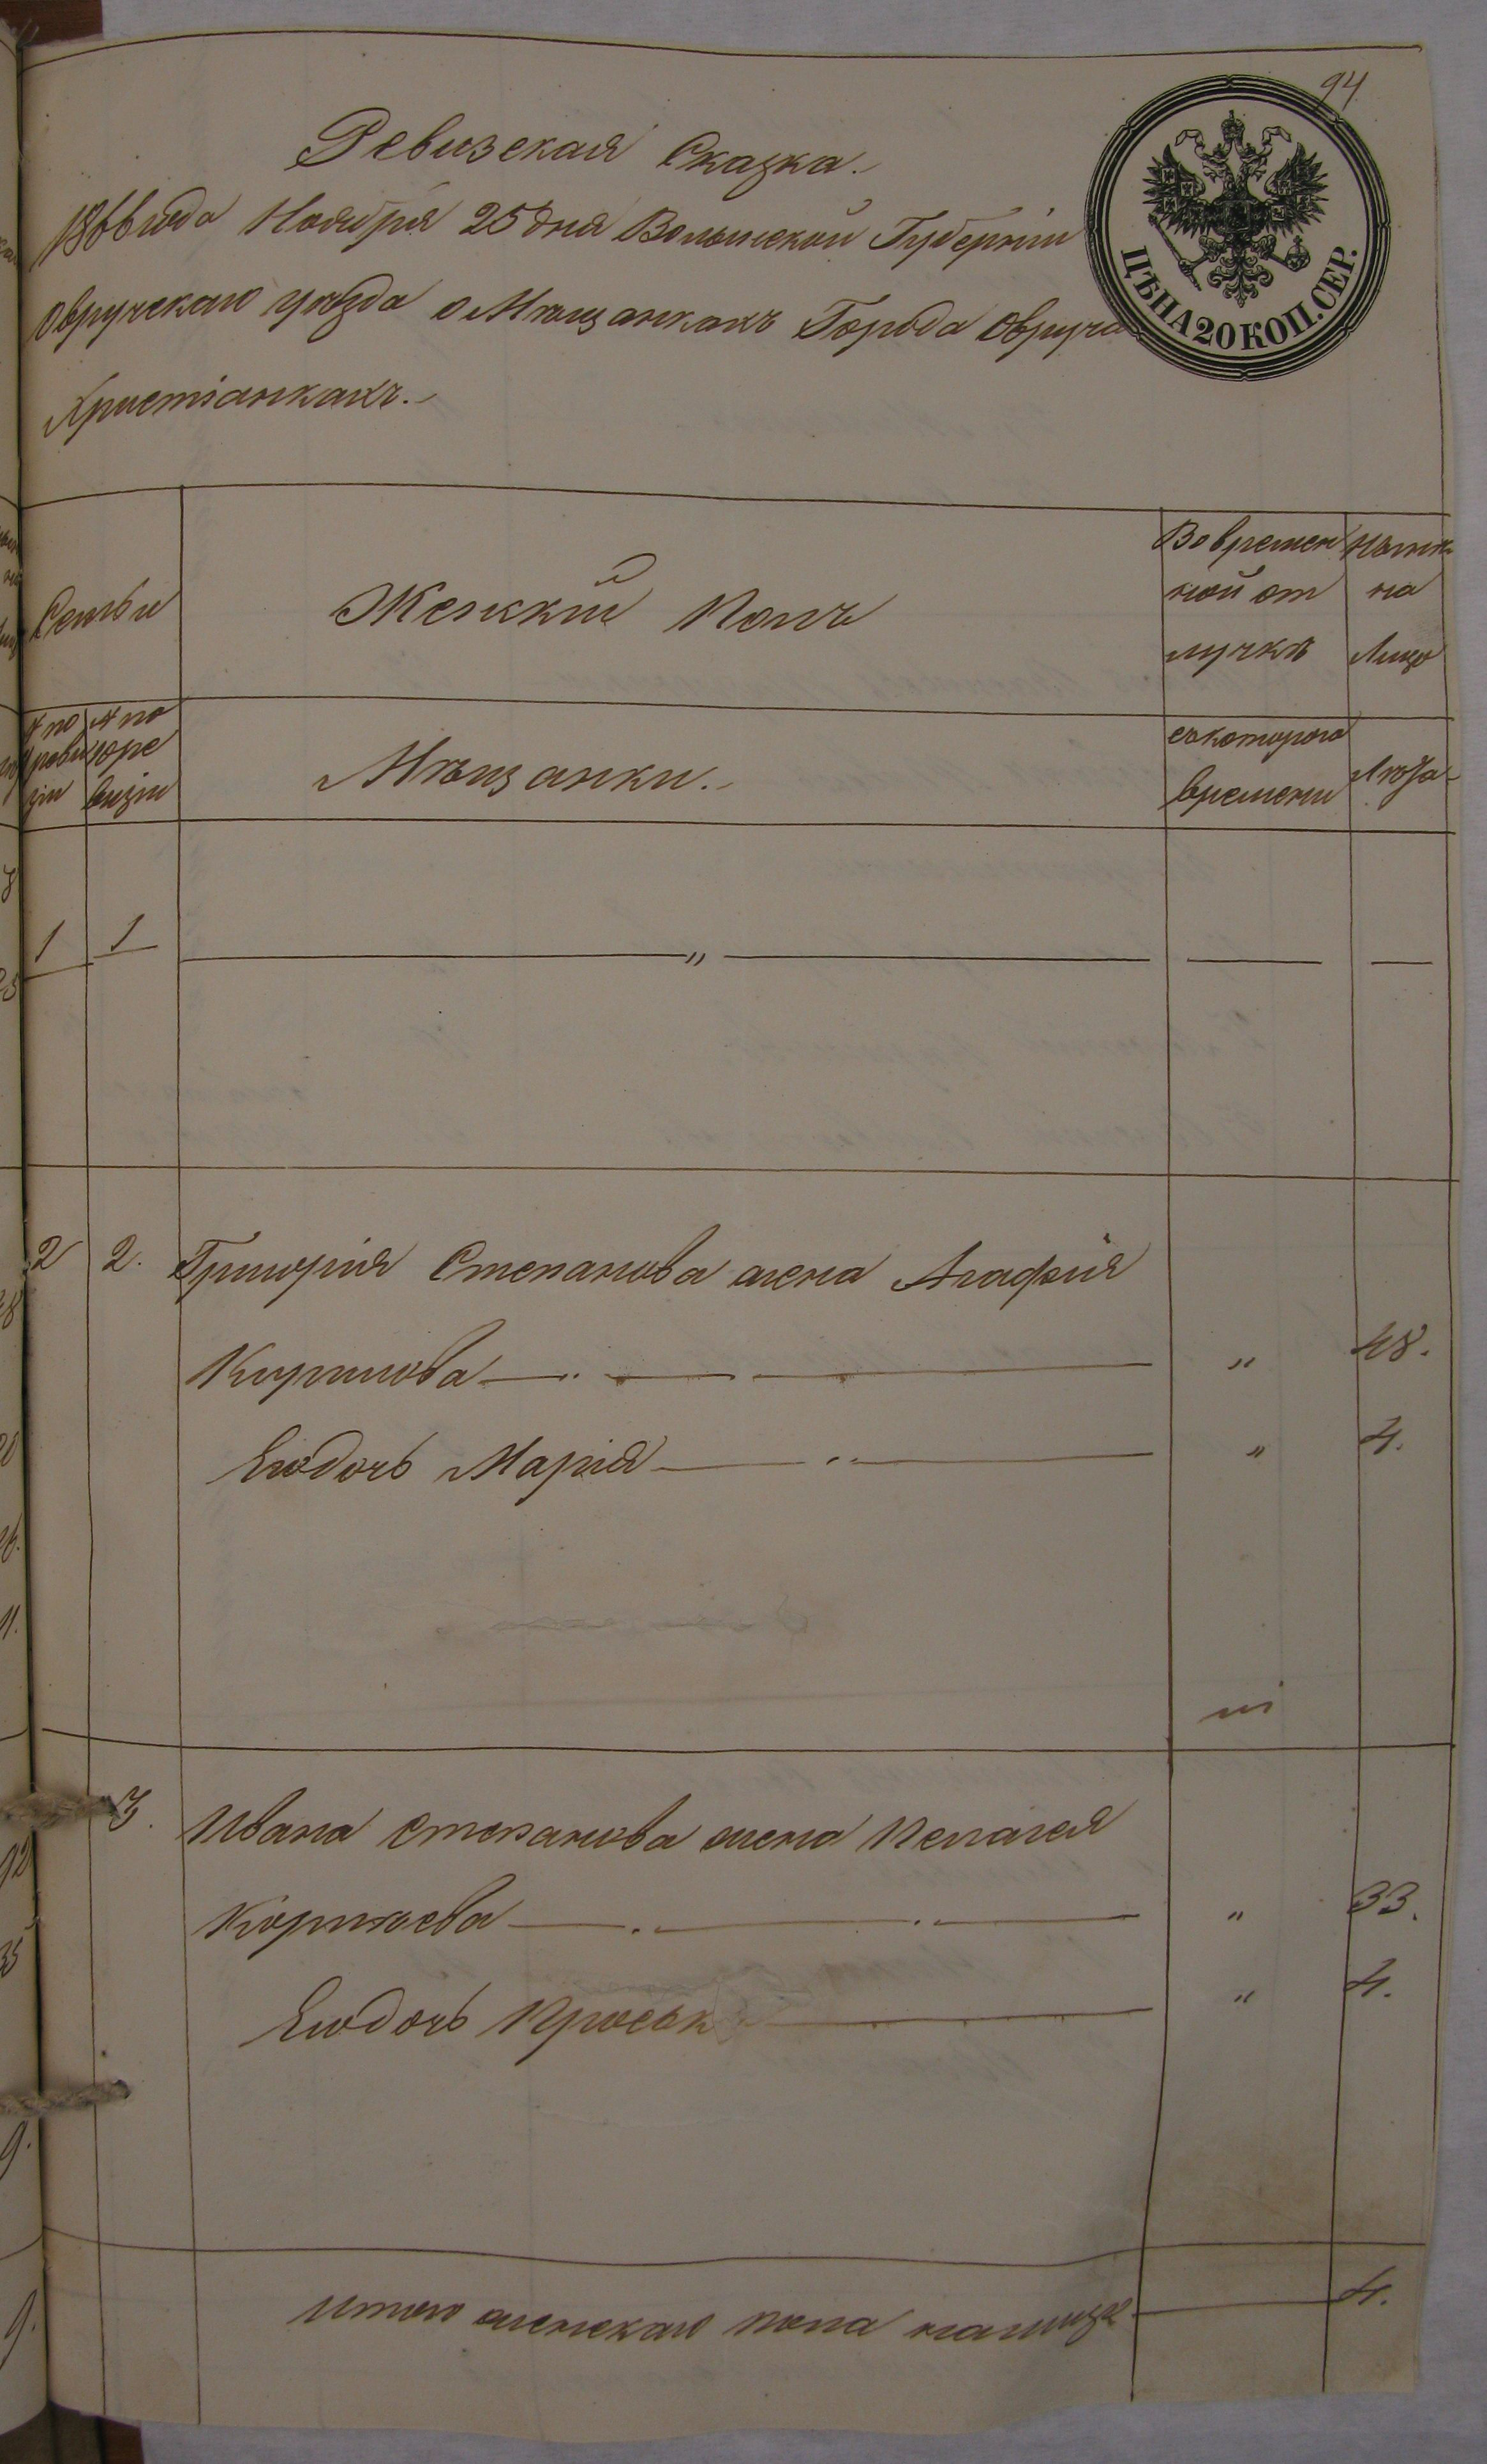 94
Ревизская Сказка.
1866 года Ноября 25 дня Волынской Губерніи
Овручскаго уѣзда о Мѣщанкахъ Города Овруча
Христіанкахъ.
ЦѢНА 20 КОП. СЕР.
Семьи
Женскій Полъ
Во времен
ной от
лучкѣ
на
Лицо
№ по
ревизіи
№ по
ревизіи
Мѣщанки.
съ котораго
времени
Лѣта
1 1 — „ — — —
2 2. Григорія Степанова жена Агафія
Кирилова — „ 48.
Его дочь Марія — „ 4.
3. Ивана Степанова жена Пелагея
„ 33.
Его дочь „ 4.
Итого женскаго пола налицо — 4.